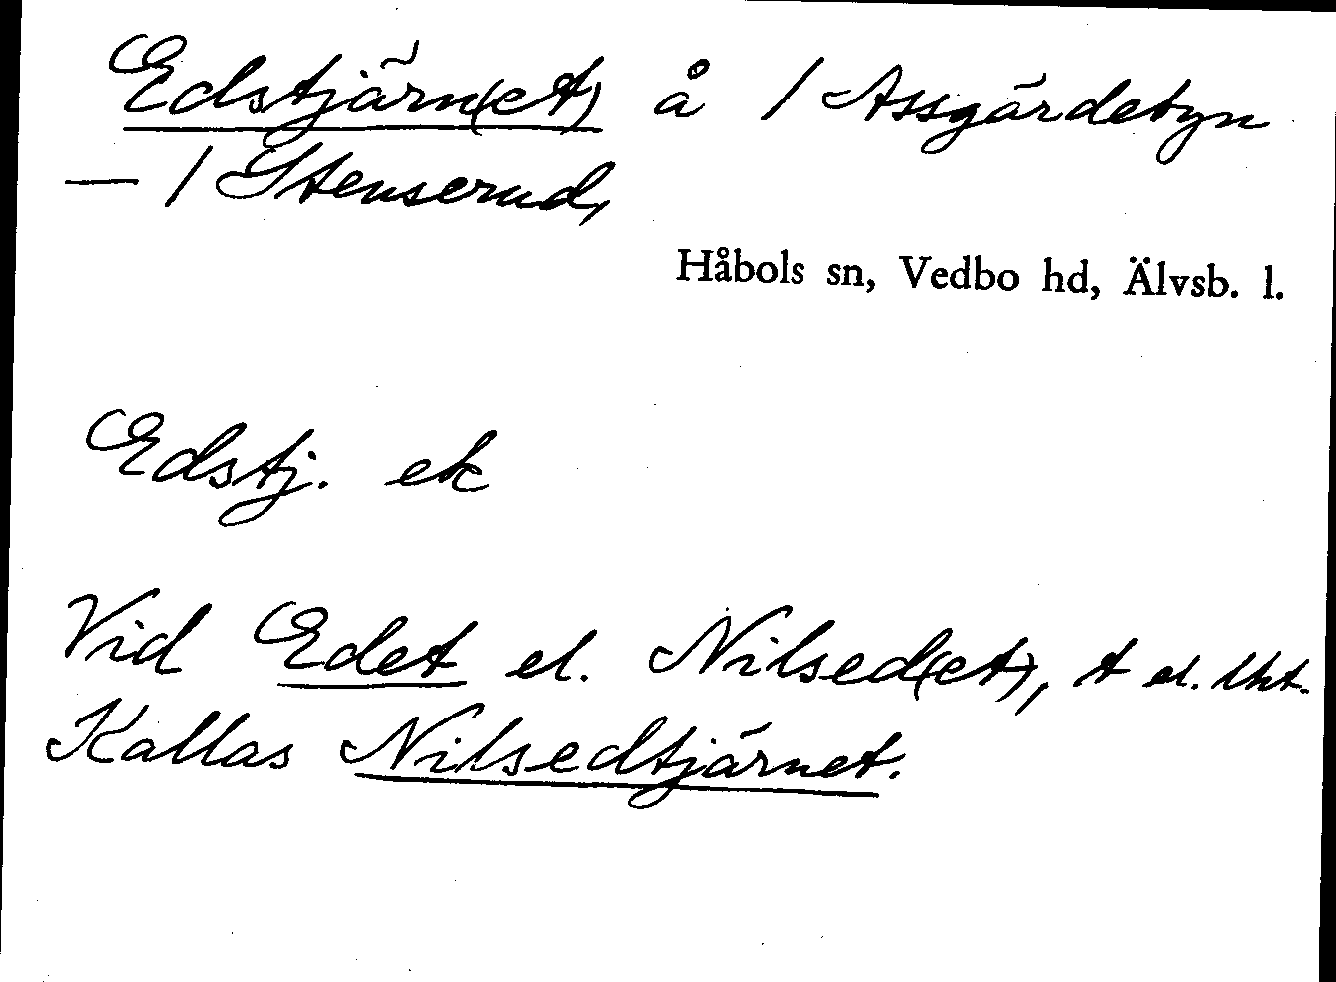 Edstjärn(et) å 1 Assgärdebyn
— 1 Stenserud,
Håbols sn, Vedbo hd, Älvsb. l.
Edstj. ek
Vid Edet el. Nilsed(et), t el.
Kallas Nilsedtjärnet.